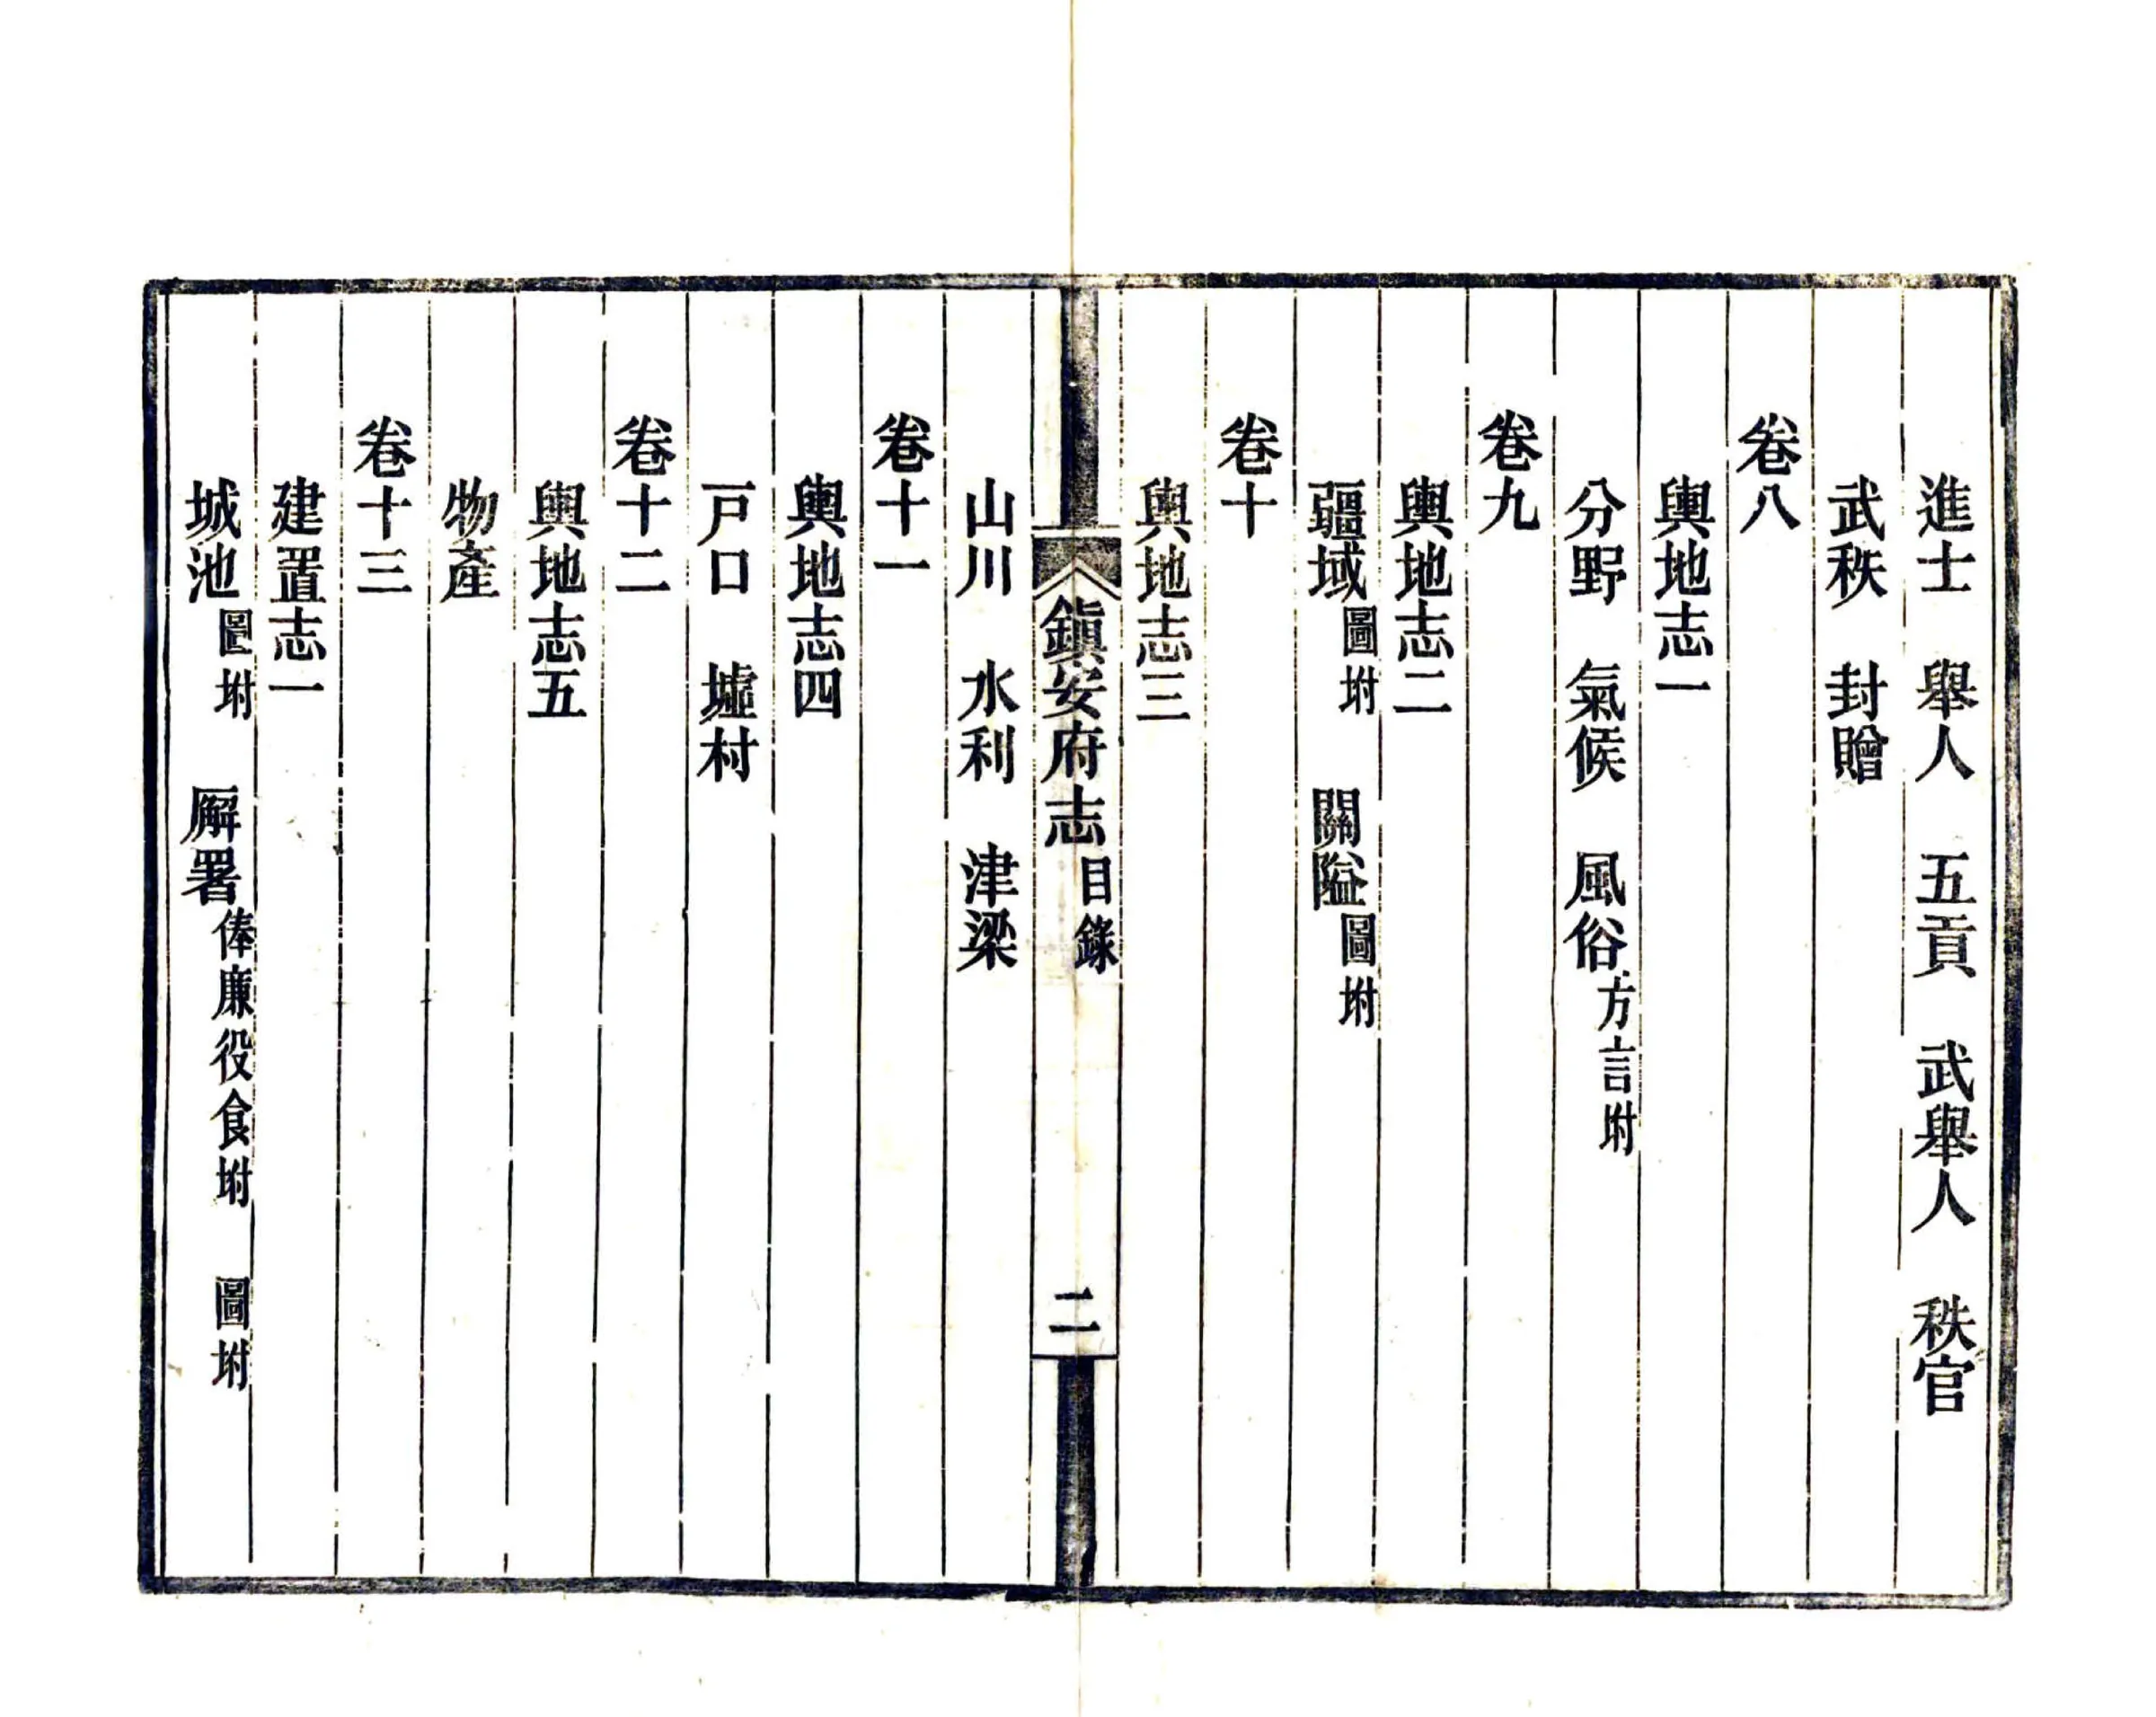 進士　舉人　五貢　武舉人　秩官
武秩　封贈
卷八
輿地志一
分野　氣候　風俗方言坿
卷九
輿地志二
疆域圖坿　關隘圖坿
卷十
輿地志三
鎭安府志目錄　二
山川　水利　津梁
卷十一
輿地志四
戸口　墟村
卷十二
輿地志五
物產
卷十三
建置志一
城池圖坿　廨署俸廉役食坿　圖坿